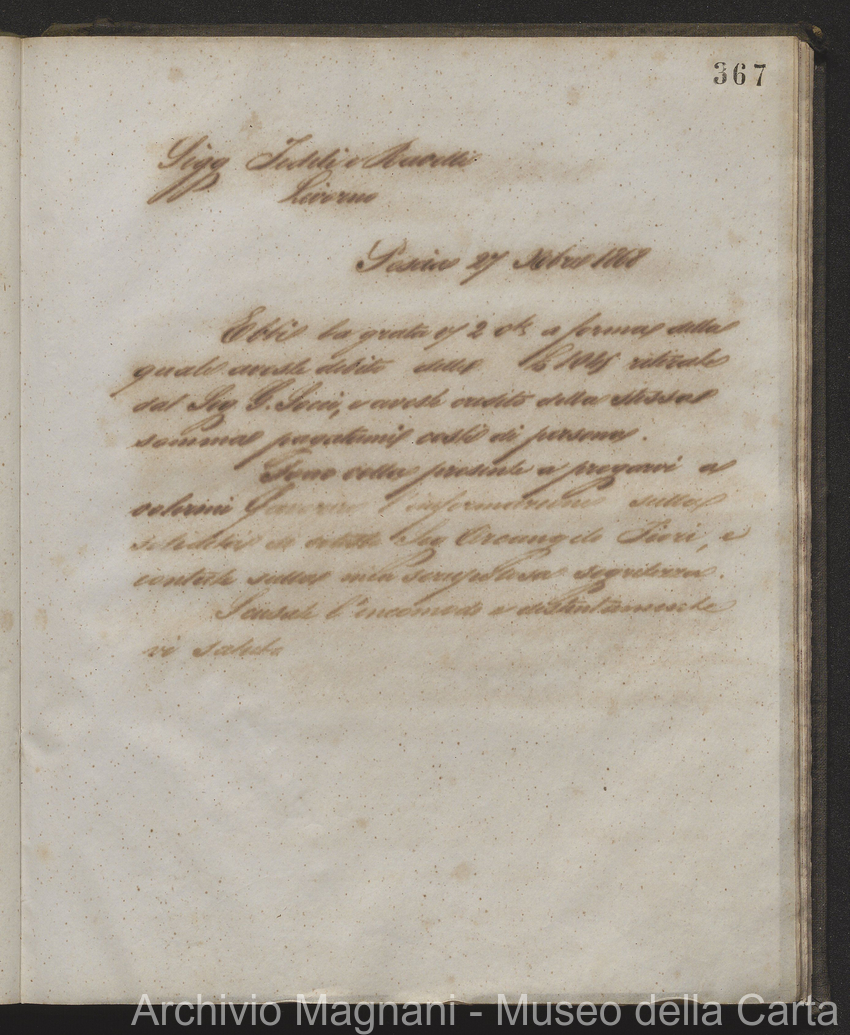 367
Sigg
Livorno
Pescia 27 Xbre 1868
Ebbi la grata vs 2 a forma della
quale aveste debito delle ritirate
dal Sig G. e aveste credito della stessa
somma pagatami costì di persona.
Sono colla presente a pregarvi a
volermi favorire l'informazione sulla
di Sig Arcangelo Fiori, e
contate sulla mia scrupolosa segretezza.
Scusate l'incomodo e distintamente
vi saluto
Archivio Magnani - Museo della Carta